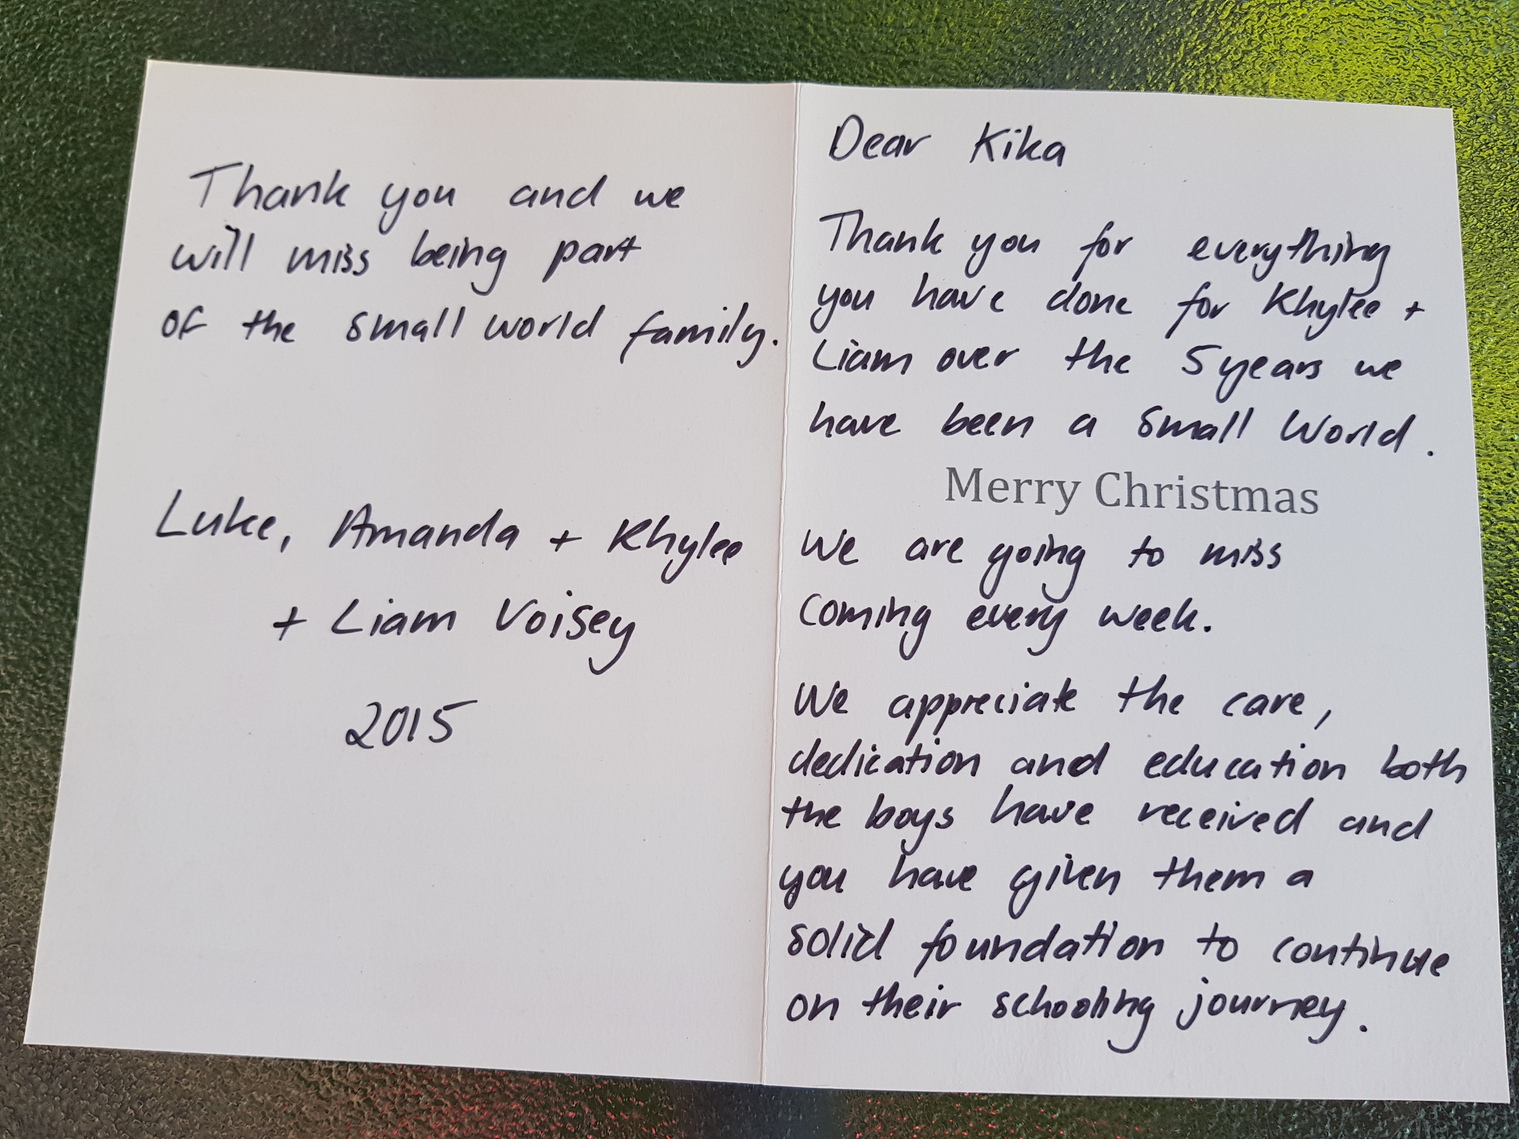 Thank you and we
will miss being part
of the small world family.
Luke, Amanda + Khylee
+ Liam Voisey
2015
Dear Kika
Thank you for everything
you have done for Khylee +
Liam over the 5 years we
have been a Small World.
Merry Christmas
We are going to miss
coming every week.
We appreciate the care,
dedication and education both
the boys have received and
you have given them a
solid foundation to continue
on their schooling journey.